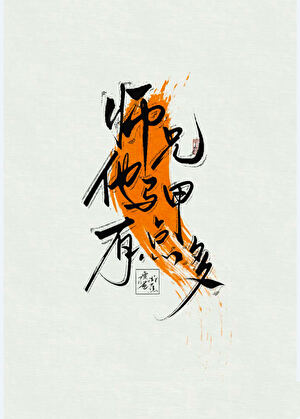 师兄
他马甲
有点多